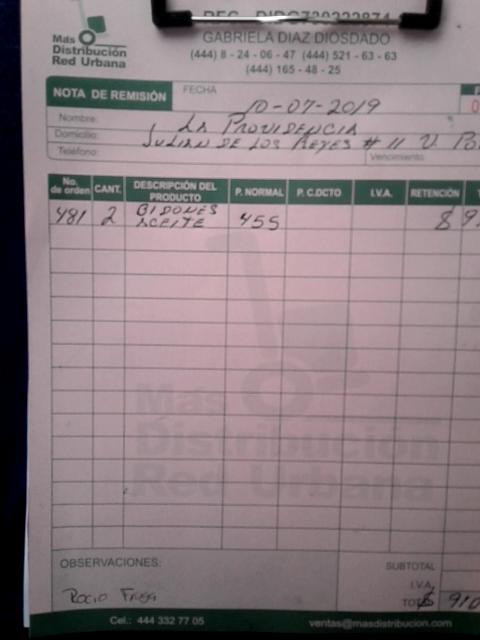 Más
Distribución
Red Urbana
GABRIELA DIAZ DIOSDADO
(444) 8 - 24 - 06 - 47 (444) 521 - 63 - 63
(444) 165 - 48 - 25
NOTA DE REMISIÓN
FECHA
10-07-2019
Nombre: LA PROVIDENCIA
Domicilio: JULIAN DE LOS REYES # 11 V.
Teléfono:
Vencimiento
No. de orden CANT. DESCRIPCIÓN DEL PRODUCTO P. NORMAL P. C.DCTO I.V.A. RETENCIÓN
481 2 BIDONES ACEITE 455 $ 9
Más
Distribución
Red Urbana
OBSERVACIONES:
SUBTOTAL
I.V.A.
$ 910
ROCIO
Cel.: 444 332 77 05 ventas@masdistribucion.com